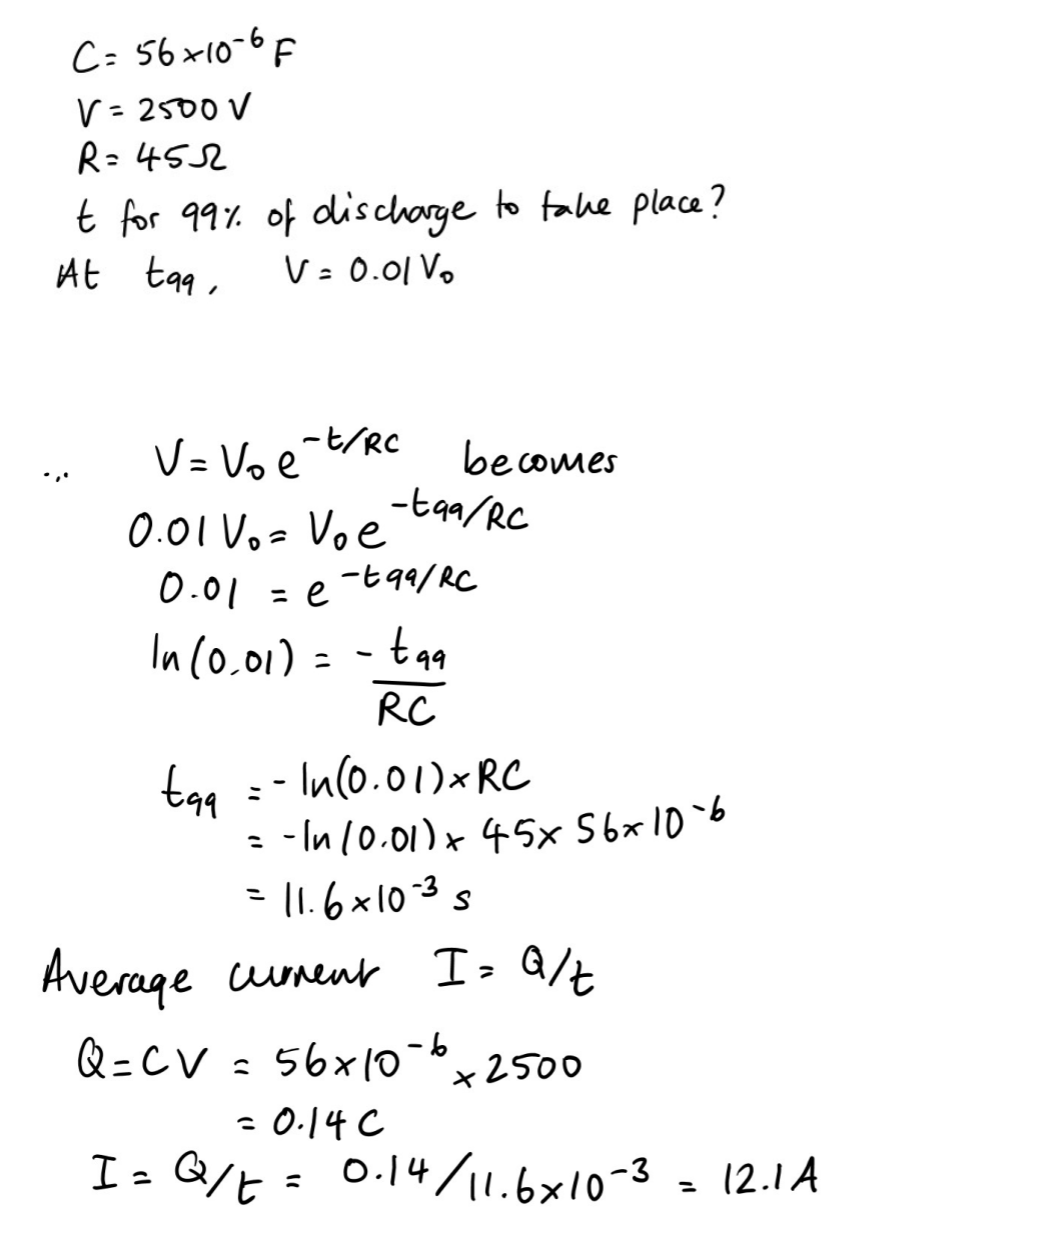 C = 56×10⁻⁶ F
V = 2500 V
R = 45Ω
t for 99% of discharge to take place?
At t₉₉, V = 0.01 V₀
∴ V = V₀ e^(-t/RC) becomes
0.01 V₀ = V₀ e^(-t₉₉/RC)
0.01 = e^(-t₉₉/RC)
ln(0.01) = - t₉₉/RC
t₉₉ = - ln(0.01) × RC
= - ln(0.01) × 45 × 56×10⁻⁶
= 11.6×10⁻³ s
Average current I = Q/t
Q = CV = 56×10⁻⁶ × 2500
= 0.14 C
I = Q/t = 0.14/11.6×10⁻³ = 12.1 A